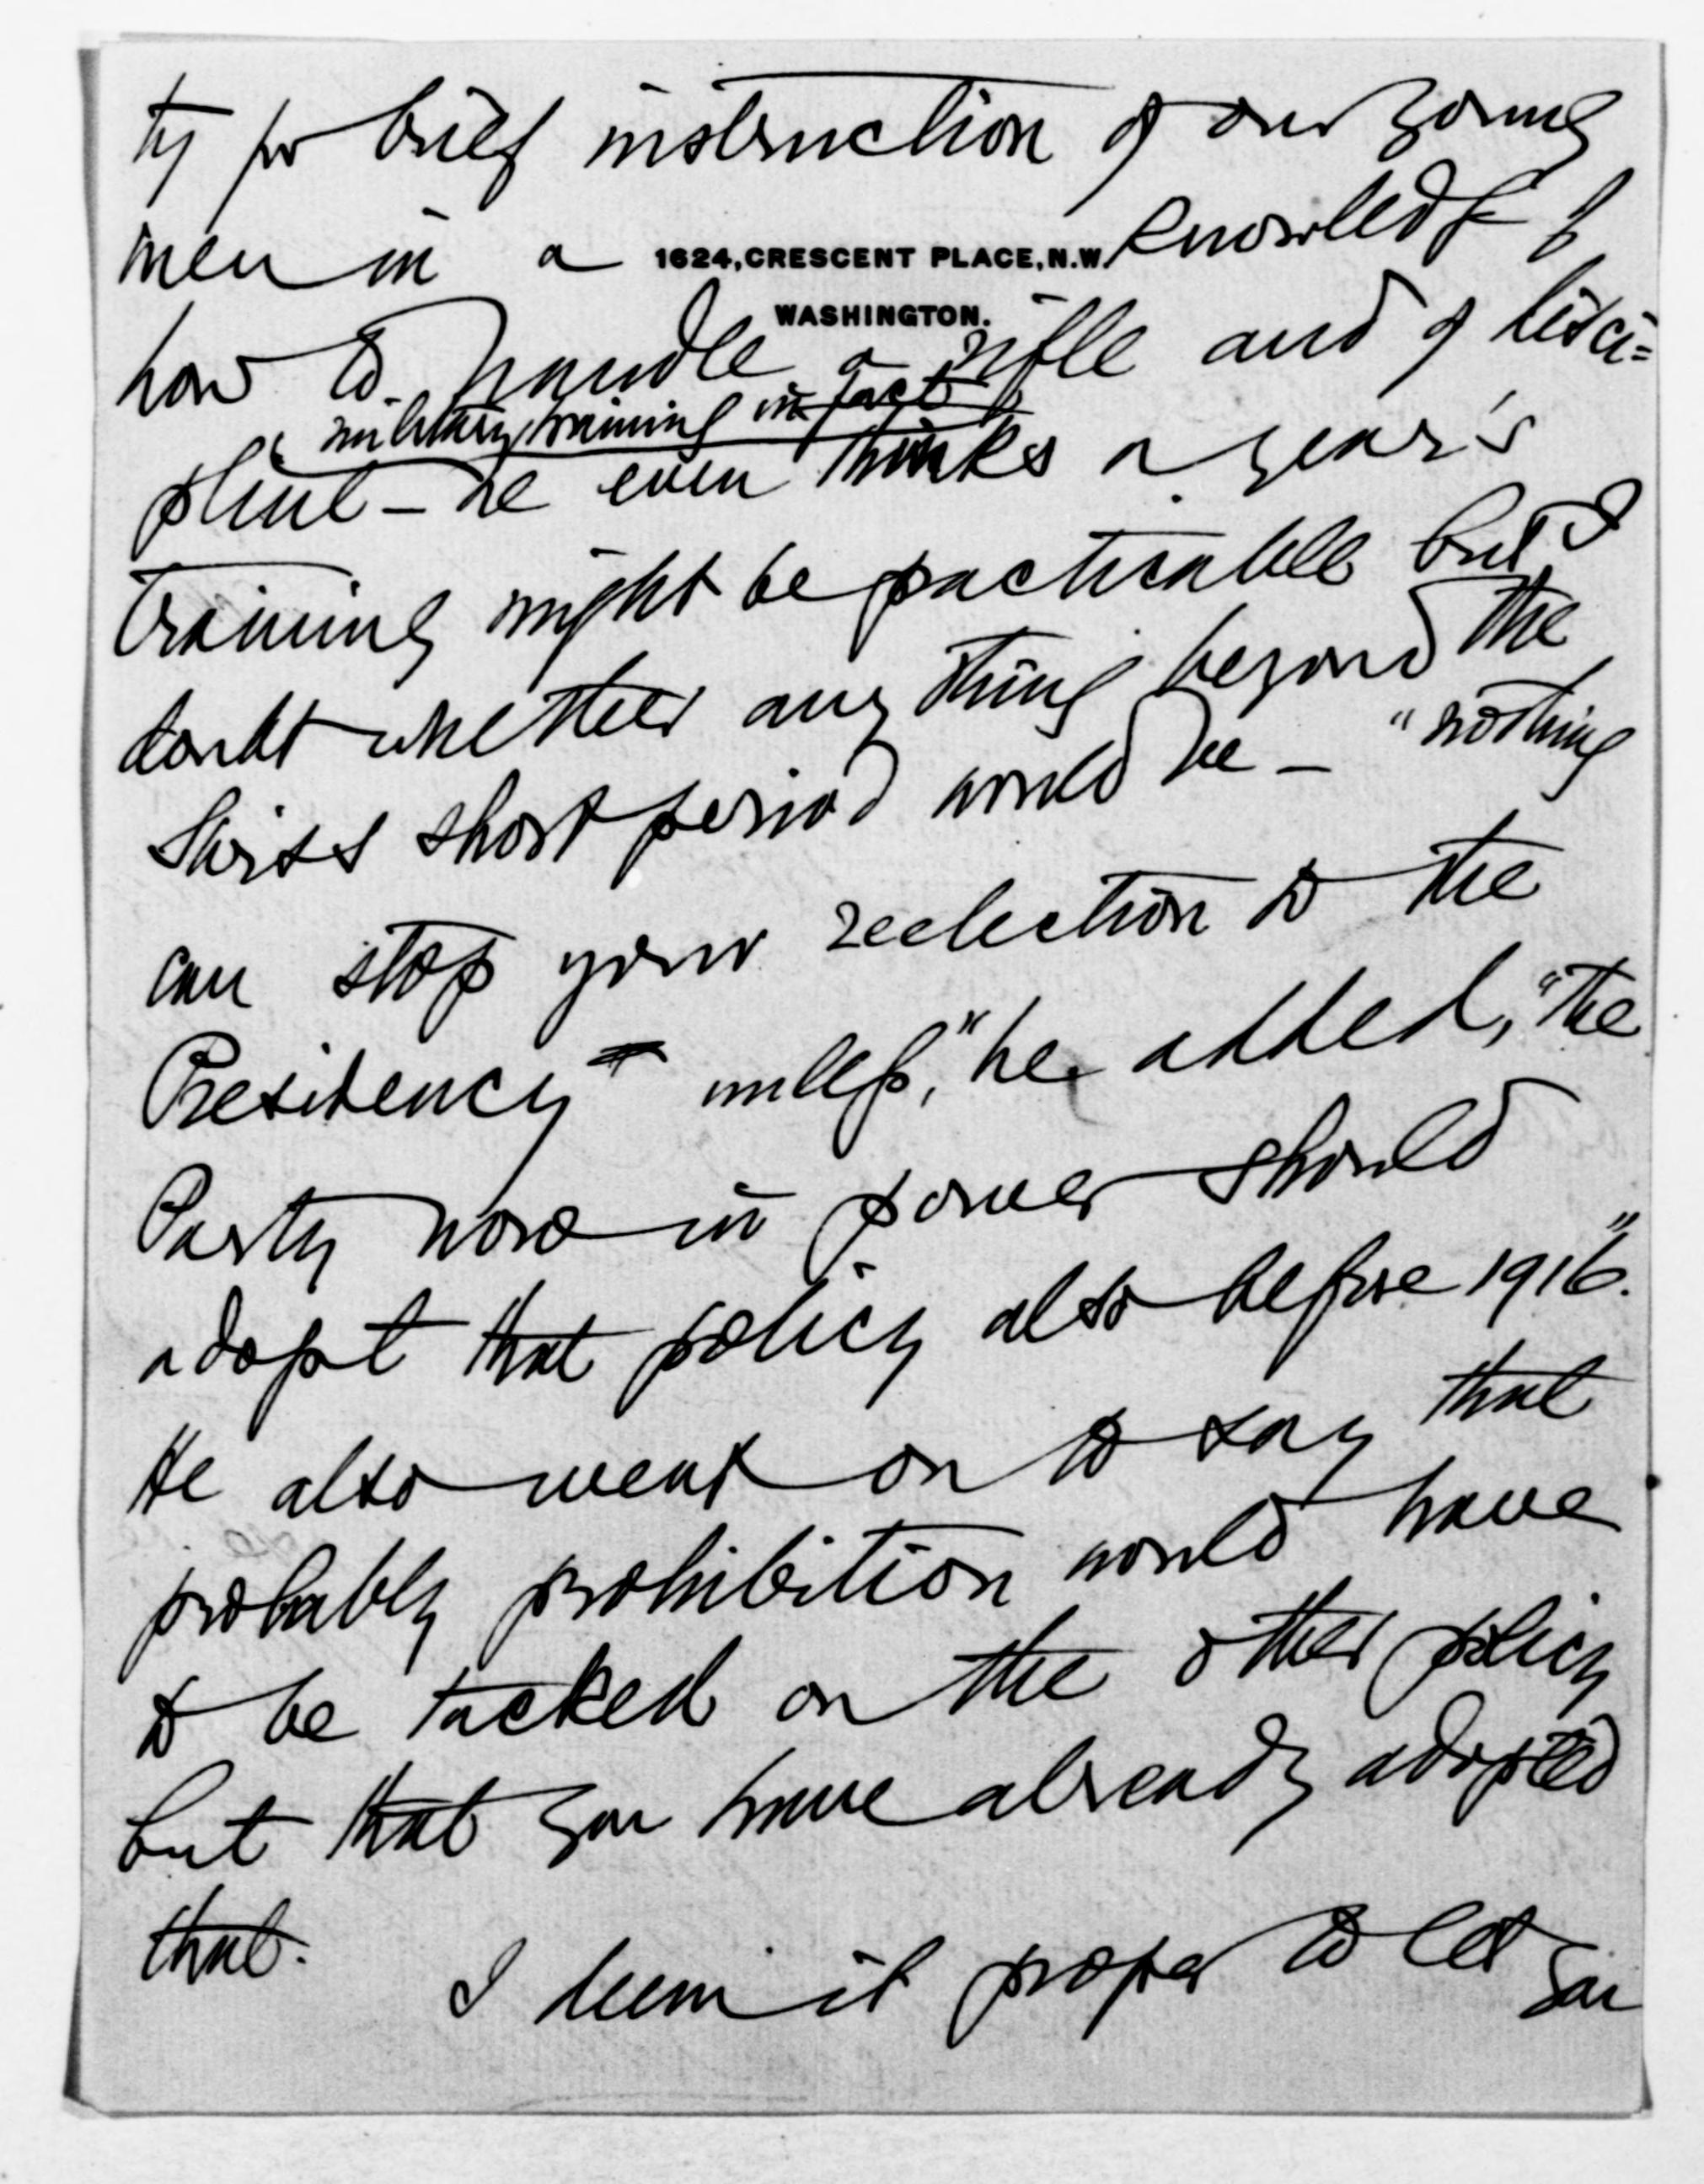 ty for brief instruction of our young
men in a knowledge of
1624, CRESCENT PLACE, N.W.
WASHINGTON.
how to handle a rifle and of disci=
military training in fact
pline – he even thinks a year's
training might be practicable but I
doubt whether any thing beyond the
Swiss short period would be – "nothing
can stop your reelection to the
Presidency unless," he added, "the
Party now in power should
adopt that policy also before 1916."
He also went on to say that
probably prohibition would have
to be tacked on the other policy
but that you have already adopted
that.
I deem it proper to let you